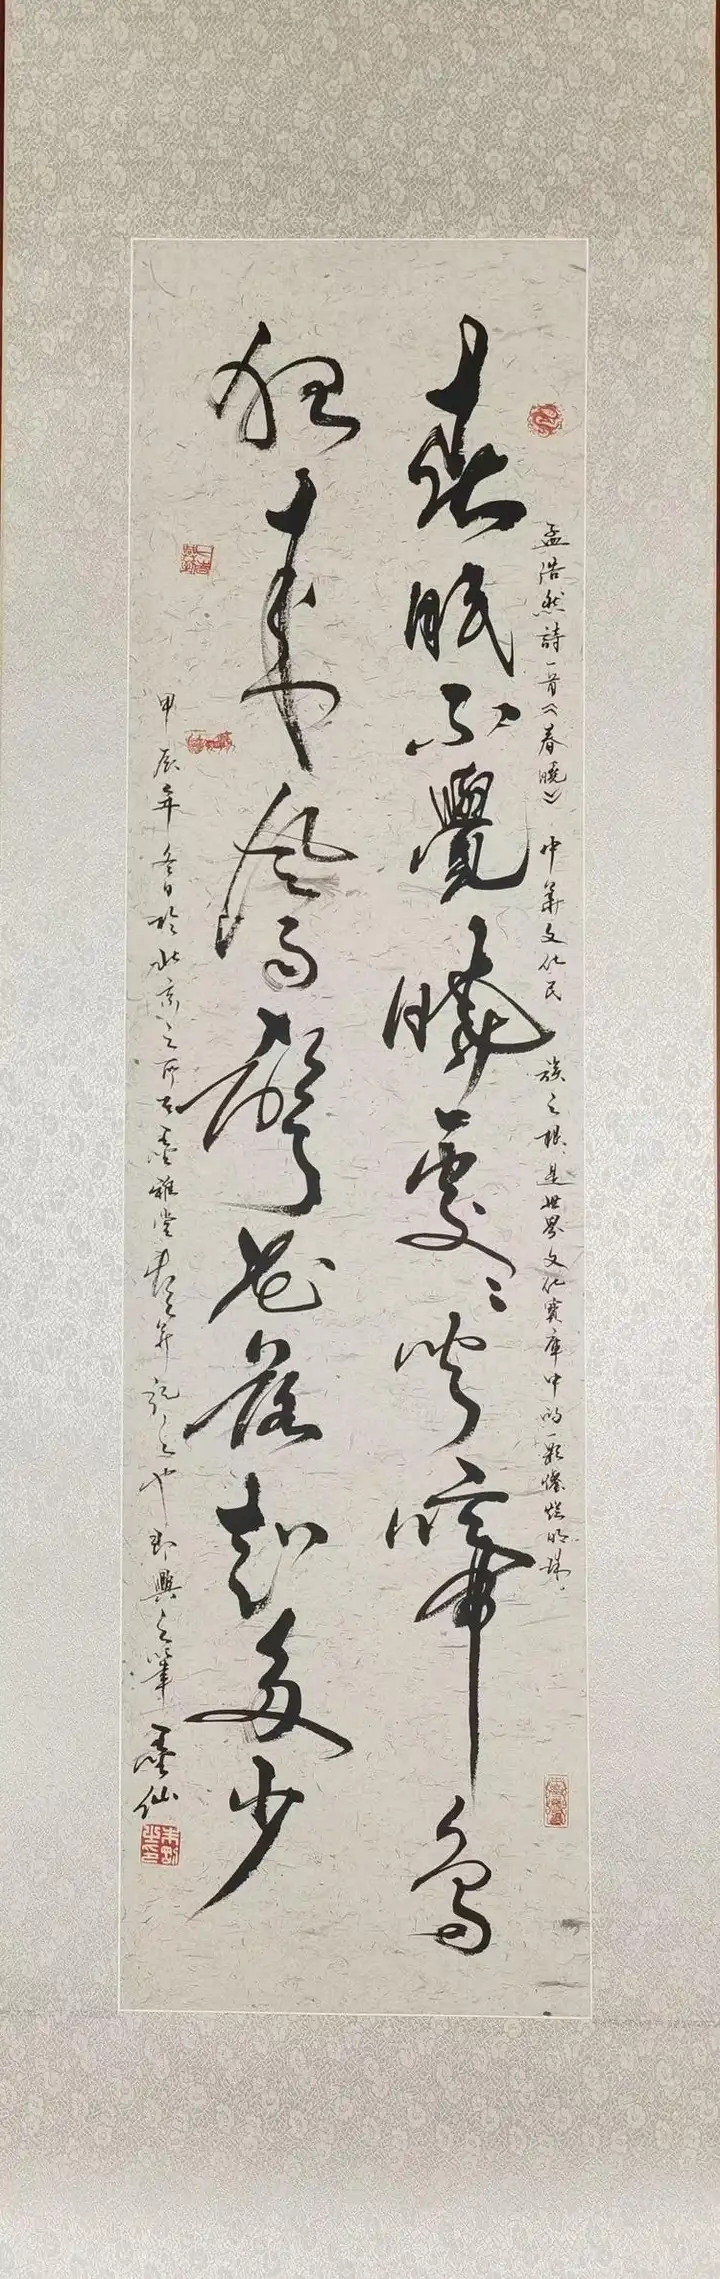 孟浩然詩一首《春曉》中華文化民族之根是世界文化寶庫中的一顆燦爛明珠
春眠不覺曉處〻聞啼鳥
夜來風雨聲花落知多少
甲辰年冬日於北京之所墨雅堂書並記之也即興之筆
墨仙